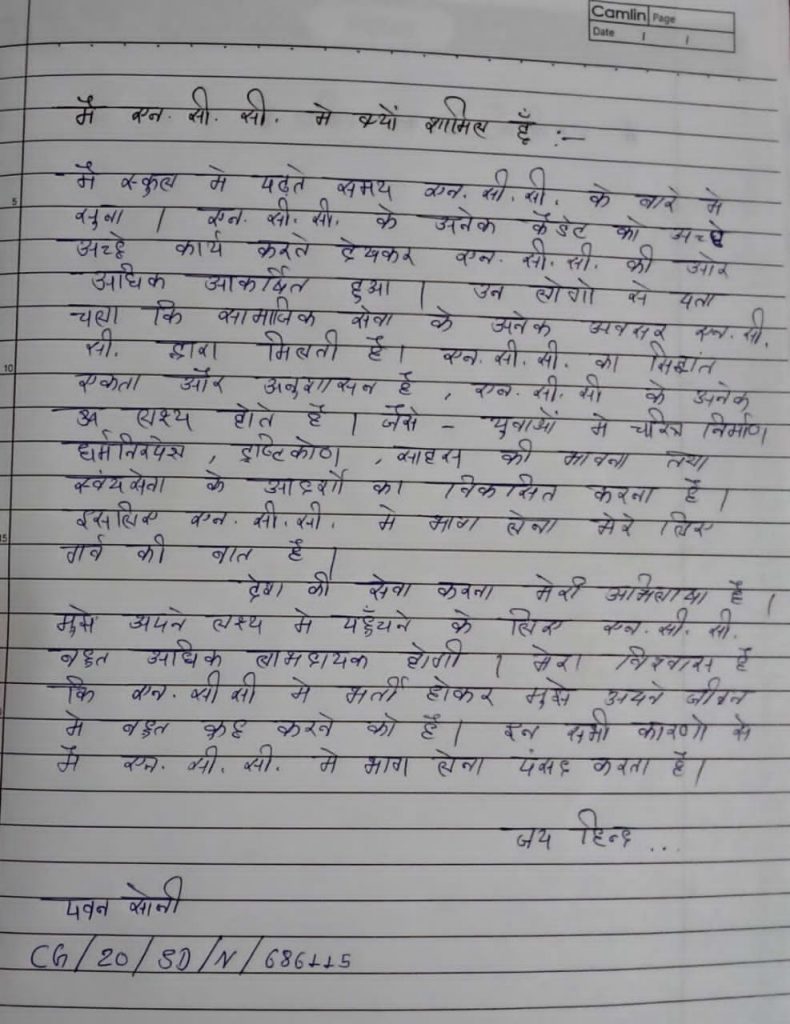 Camlin Page
Date / /
मै एन. सी. सी. मे क्यों शामिल हूँ :-
5
मै स्कुल मे पढ़ते समय एन. सी. सी. के बारे मे
सुना । एन. सी. सी. के अनेक कैडेट को अच्छे
अच्छे कार्य करते देखकर एन. सी. सी. की ओर
अधिक आकर्षित हुआ । उन लोगो से पता
चला कि सामाजिक सेवा के अनेक अवसर एन. सी.
10
सी. द्वारा मिलती है। एन. सी. सी. का सिद्धांत
एकता और अनुशासन है , एन. सी. सी के अनेक
लक्ष्य होते है । जैसे - युवाओं मे चरित्र निर्माण
धर्मनिरपेक्ष , दृष्टिकोण , साहस की भावना तथा
स्वंयसेवा के आदर्शो का विकसित करना है ।
इसलिए एन. सी. सी. मे भाग लेना मेरे लिए
15
गर्व की बात है |
देश की सेवा करना मेरी अभिलाषा है ।
मुझे अपने लक्ष्य मे पहुँचने के लिए एन. सी. सी.
बहुत अधिक लाभदायक होगी । मेरा विश्वास है
कि एन. सी सी मे भर्ती होकर मुझे अपने जीवन
मे बहुत कुछ करने को है । इन सभी कारणो से
मै एन. सी. सी. मे भाग लेना पंसद करता है।
जय हिन्द ...
पवन सोनी
CG/20/SD/N/686115